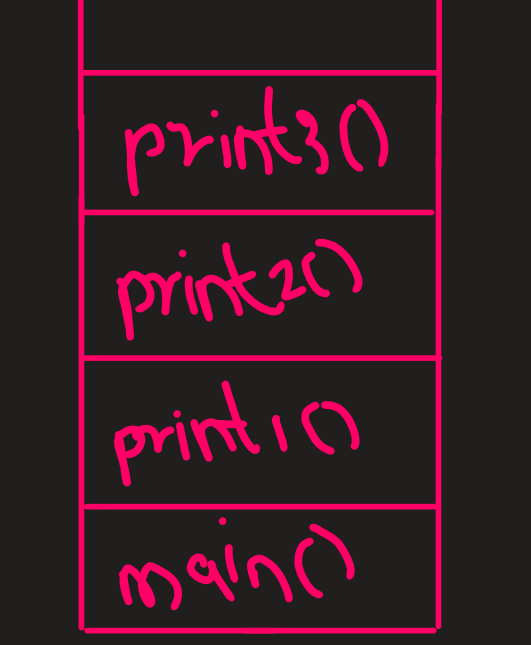 print3()
print2()
print1()
main()